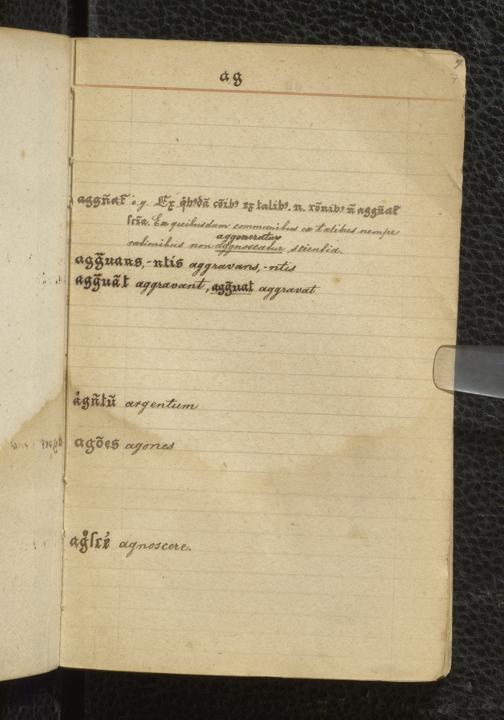 ag
aggñat̃ e.g. Ex q̃bꝰdã cõibꝰ ex talibꝰ. n. rõnibꝰ ñ aggñat̃
scĩa. Ex quibusdam communibus ex talibus nempe
aggeneratur
rationibus non aggnoscatur scientia.
agg̃uans, -ntis aggravans, -ntis
agg̃uãt aggravant, agg̃uat aggravat
ag̃ñtũ argentum
agões agones
agͦsce᷑ agnoscere.